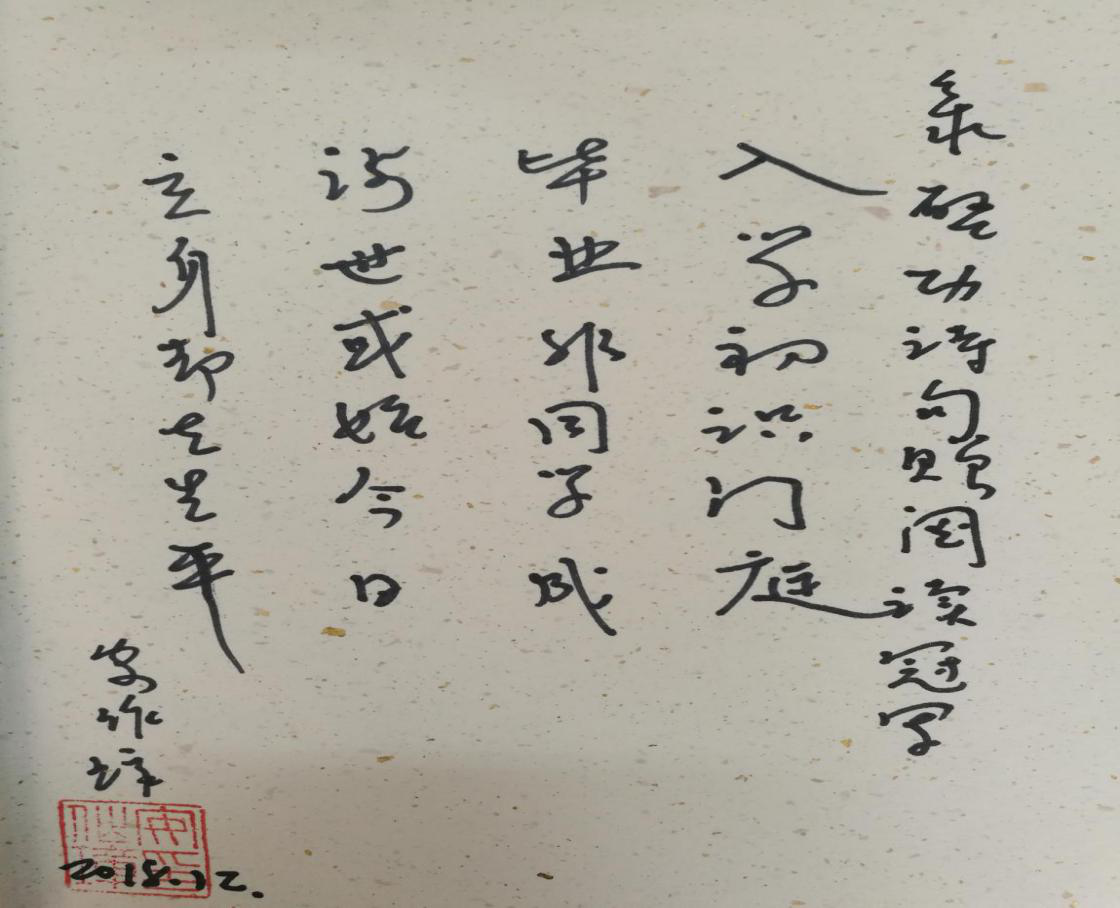 录啓功诗句赠阅读冠军
入学初识门庭
毕业非同学成
涉世或始今日
立身却在生平
安作璋
2018.12.